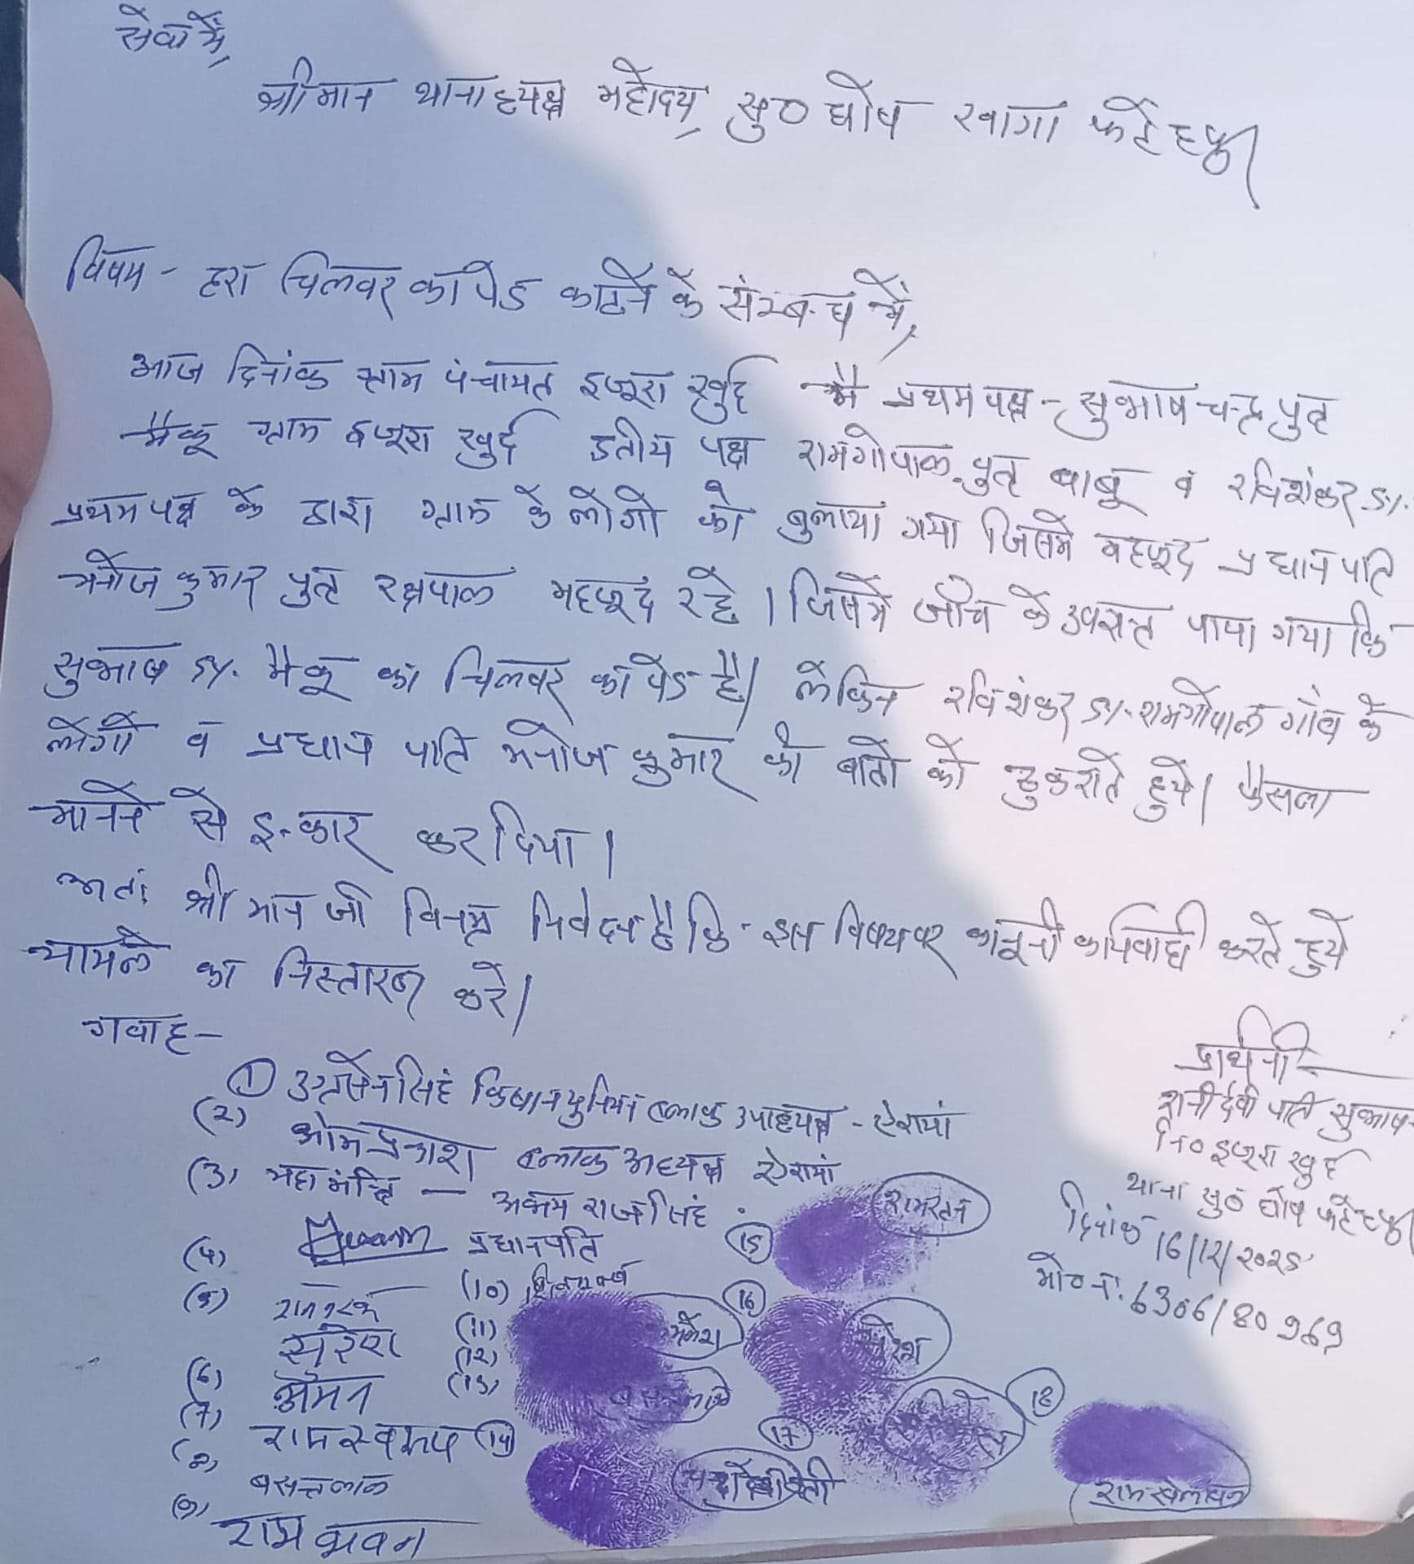 सेवा में,
श्रीमान थानाध्यक्ष महोदय, सु० घोष खागा फतेहपुर
विषय - हरा चिलवर का पेड काटने के संम्बन्ध में,
आज दिनांक ग्राम पंचायत इजूरा खुर्द में प्रथम पक्ष - सुभाष चन्द्र पुत्र
मैकू ग्राम इजूरा खुर्द द्वतीय पक्ष रामगोपाल पुत्र बाबू व रविशंकर S/.
प्रथम पक्ष के द्वारा ग्राम के लोगो को बुलाया गया जिसमे महजूद प्रधान पति
मनोज कुमार पुत्र रक्षपाल महजूद रहे । जिसमें जाँच के उपरान्त पाया गया कि
सुभाष S/. मैकू का चिलवर का पेड है। लेकिन रविशंकर S/. रामगोपाल गाँव के
लोगों व प्रधान पति मनोज कुमार की बातों को ठुकराते हुये। फैसला
मानने से इन्कार कर दिया ।
अतः श्री मान जी विनम्र निवेदन है कि - इस विषय पर कानूनी कार्यवाही करते हुये
मामले का निस्तारण करे।
गवाह -
① उग्रसेन सिंह किसान यूनियन ब्लाक उपाध्यक्ष - ऐरायां
(2) ओम प्रकाश ब्लाक अध्यक्ष ऐरायां
(3) महा मंत्रि - राज सिंह
(4) प्रधानपति
(5)
सुरेश
(6) अमन
(7) राम स्वरूप
(8) बसन्तलाल
(9) राम भवन
(10)
(11)
(12)
(13)
(14)
(15) रामरतन
(16) सुरेश
(17)
(18) राम खेलावन
प्रार्थिनी
रानी देवी पति सुभाष
नि० इजूरा खुर्द
थाना सु० घोष फतेहपुर
दिनांक 16/12/2025
मो० नं. 6306180969